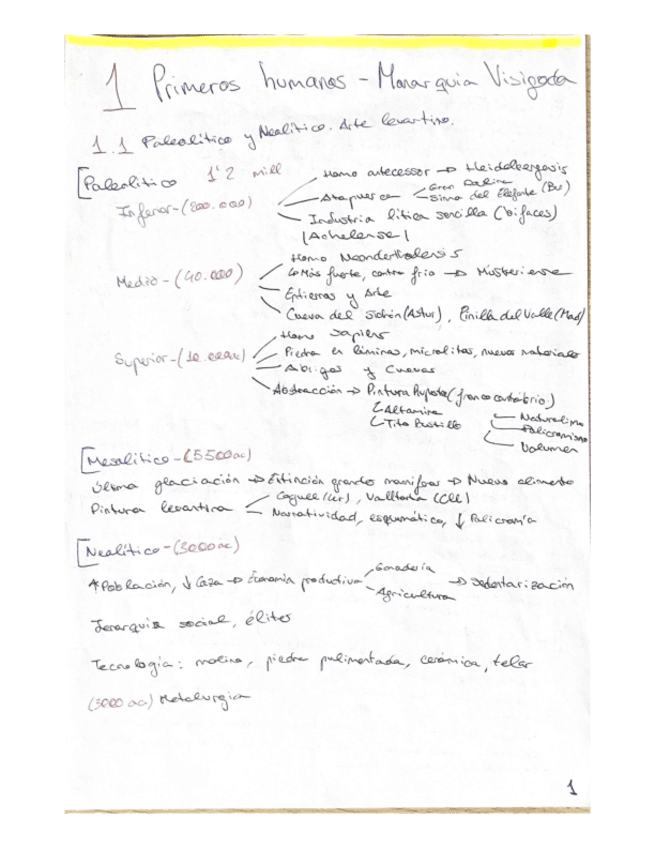 1 Primeros humanos - Monarquía Visigoda
1.1 Paleolítico y Neolítico. Arte levantino.
Paleolítico 1'2 mill
Inferior - (800.000)
Homo antecessor → Heidelbergesis
Atapuerca
Gran Dolina
Sima del Elefante (Bu)
Industria lítica sencilla (bifaces)
|Achelense|
Medio - (40.000)
Homo Neanderthalensis
↳ Más fuerte, contra frío → Musteriense
Entierros y Arte
Cueva del Sidrón (Astur), Pinilla del Valle (Mad)
Superior - (10.000ac)
Homo sapiens
Piedra en láminas, microlitos, nuevos materiales
Abrigos y Cuevas
Abstracción → Pintura Rupestre (franco cantábrico)
Altamira
Tito Bustillo
Naturalismo
Policromismo
Volumen
Mesolítico - (5500ac)
Última glaciación → Extinción grandes mamíferos → Nuevo alimento
Pintura levantina
Cogull (Lér), Valltorta (CLL)
Narratividad, esquemático, ↓ Policromía
Neolítico - (3000ac)
↑ Población, ↓ Caza → Economía productiva
Ganadería
Agricultura
→ Sedentarización
Jerarquía social, élites
Tecnología: molino, piedra pulimentada, cerámica, telar
(3000 ac) Metalurgia
1